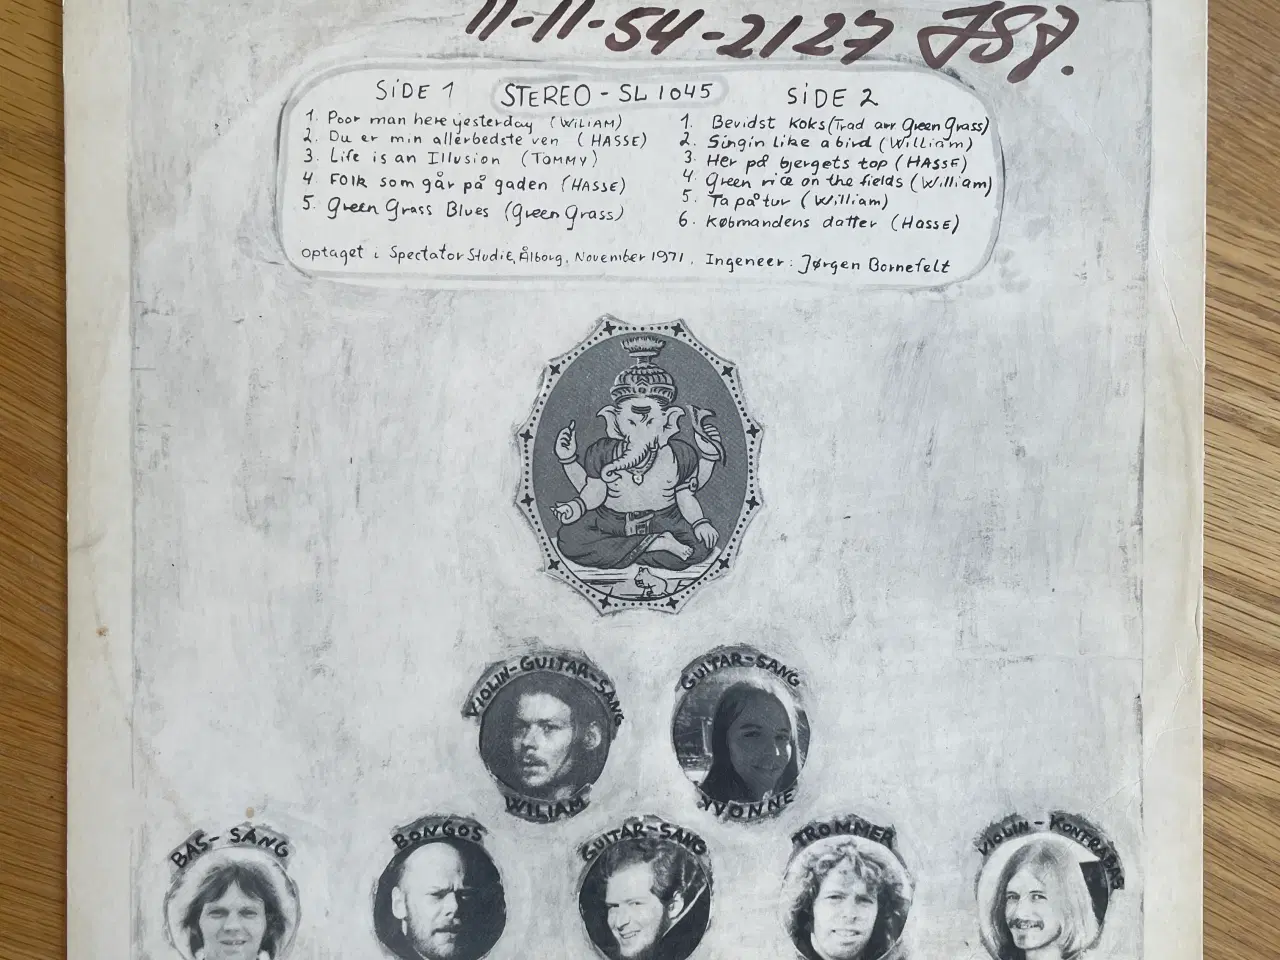 11-11-54-2127
SIDE 1
STEREO - SL 1045
SIDE 2
1. Poor man here yesterday (WILIAM)
2. Du er min allerbedste ven (HASSE)
3. Life is an Illusion (TOMMY)
4. Folk som går på gaden (HASSE)
5. Green Grass Blues (Green Grass)
1. Bevidst Koks (Trad arr Green Grass)
2. Singin Like a bird (William)
3. Her på bjergets top (HASSE)
4. Green rice on the fields (William)
5. Ta på tur (William)
6. Købmandens datter (Hasse)
Optaget i Spectator Studie, Ålborg. November 1971. Ingeneer: Jørgen Bornefelt
VIOLIN-GUITAR-SANG
WILIAM
GUITAR-SANG
YVONNE
BAS-SANG
BONGOS
GUITAR-SANG
TROMMER
VIOLIN-KONTRABAS